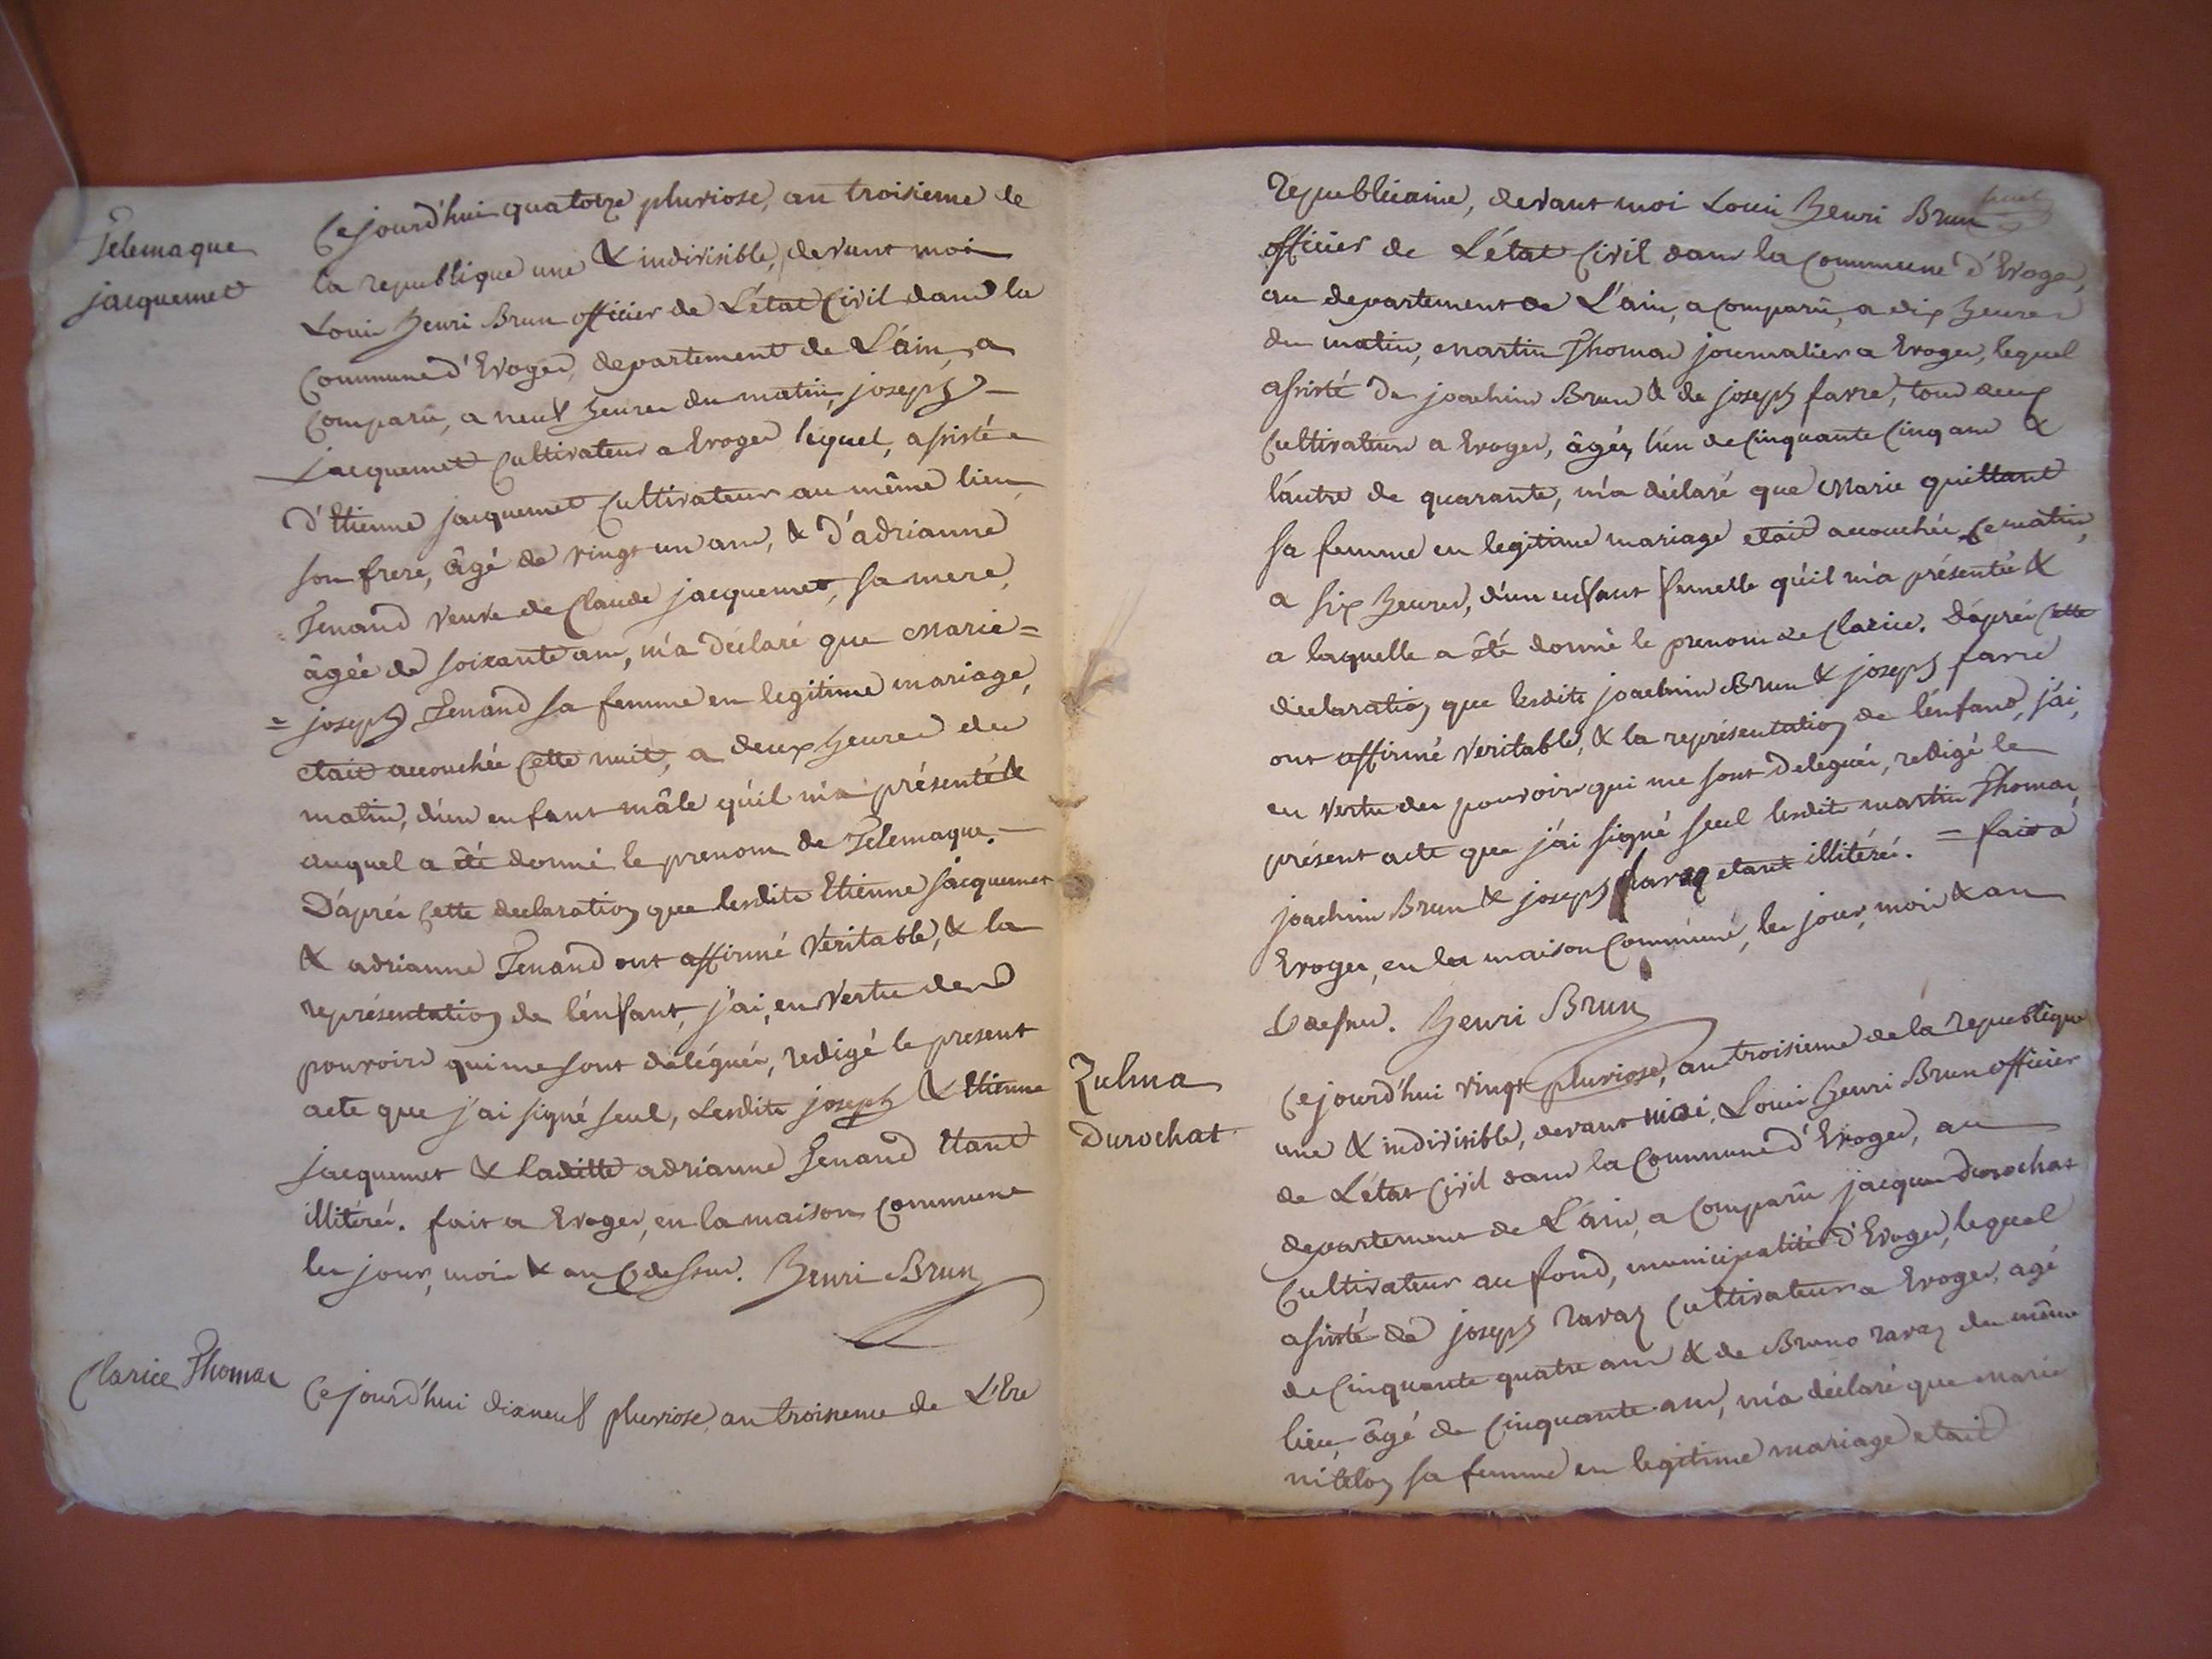 Telemaque
jacquemet
Cejourd'hui quatorze pluviose, an troisieme de
la republique une & indivisible, devant moi
Louis Henri Brun officier de L'état Civil dans la
Commune d'Evoges, departement de L'ain, a
Comparu, a neuf heures du matin, joseph
jacquemet Cultivateur a Evoges lequel, assisté
d'Etienne jacquemet Cultivateur au même lieu
son frere, âgé de vingt un ans, & d'adrianne
Tenand veuve de Claude jacquemet, sa mere,
âgée de soixante ans, m'a déclaré que Marie =
= joseph Tenand sa femme en legitime mariage,
etait accouchée Cette nuit, a deux heures du
matin, d'un enfant mâle qu'il m'a présenté &
auquel a été donné le prenom de Telemaque.
D'après Cette declaration que lesdits Etienne jacquemet
& adrianne Tenand ont affirmé Veritable, & la
représentation de l'enfant, j'ai, en vertu des
pouvoirs qui me sont délégués, redigé le present
acte que j'ai signé seul, Lesdits joseph & Etienne
jacquemet & Laditte adrianne Tenand Etant
illitérés. fait a Evoges, en la maison Commune
les jour, mois & an Cydessus. Henri Brun
Clarice Thomas
Cejourd'hui dixneuf pluviose, an troisieme de L'Ere
republicaine, devant moi Louis Henri Brun
officier de L'état Civil dans la Commune d'Evoges,
au departement de L'ain, a Comparu, a dix heures
du matin, Martin Thomas journalier a Evoges, lequel
assisté de joachim Brun & de joseph favre, tous deux
Cultivateurs a Evoges, âgés, l'un de Cinquante Cinq ans &
l'autre de quarante, m'a déclaré que Marie quittant
sa femme en legitime mariage etait accouchée Cematin,
a six heures, d'un enfant femelle qu'il m'a présenté &
a laquelle a été donné le prenom de Clarice. D'après Cette
declaration que lesdits joachim Brun & joseph favre
ont affirmé Veritable, & la représentation de l'enfant, j'ai,
en vertu des pouvoirs qui me sont delegués, redigé le
présent acte que j'ai signé seul lesdits martin Thomas,
joachim Brun & joseph etant illitérés. = fait a
Evoges, en la maison Commune, les jour, mois & an
Cydessus. Henri Brun
Zulma
Durochat
Cejourd'hui vingt pluviose, an troisieme de la republique
une & indivisible, devant moi, Louis Henri Brun officier
de L'état Civil dans la Commune d'Evoges, au
departement de L'ain, a Comparu jacques Durochat
Cultivateur au fond, municipalité d'Evoges, lequel
assisté de joseph ravaz Cultivateur a Evoges, agé
de Cinquante quatre ans & de Bruno ravaz du même
lieu, âgé de Cinquante ans, m'a déclaré que Marie
nitelon sa femme en legitime mariage etait